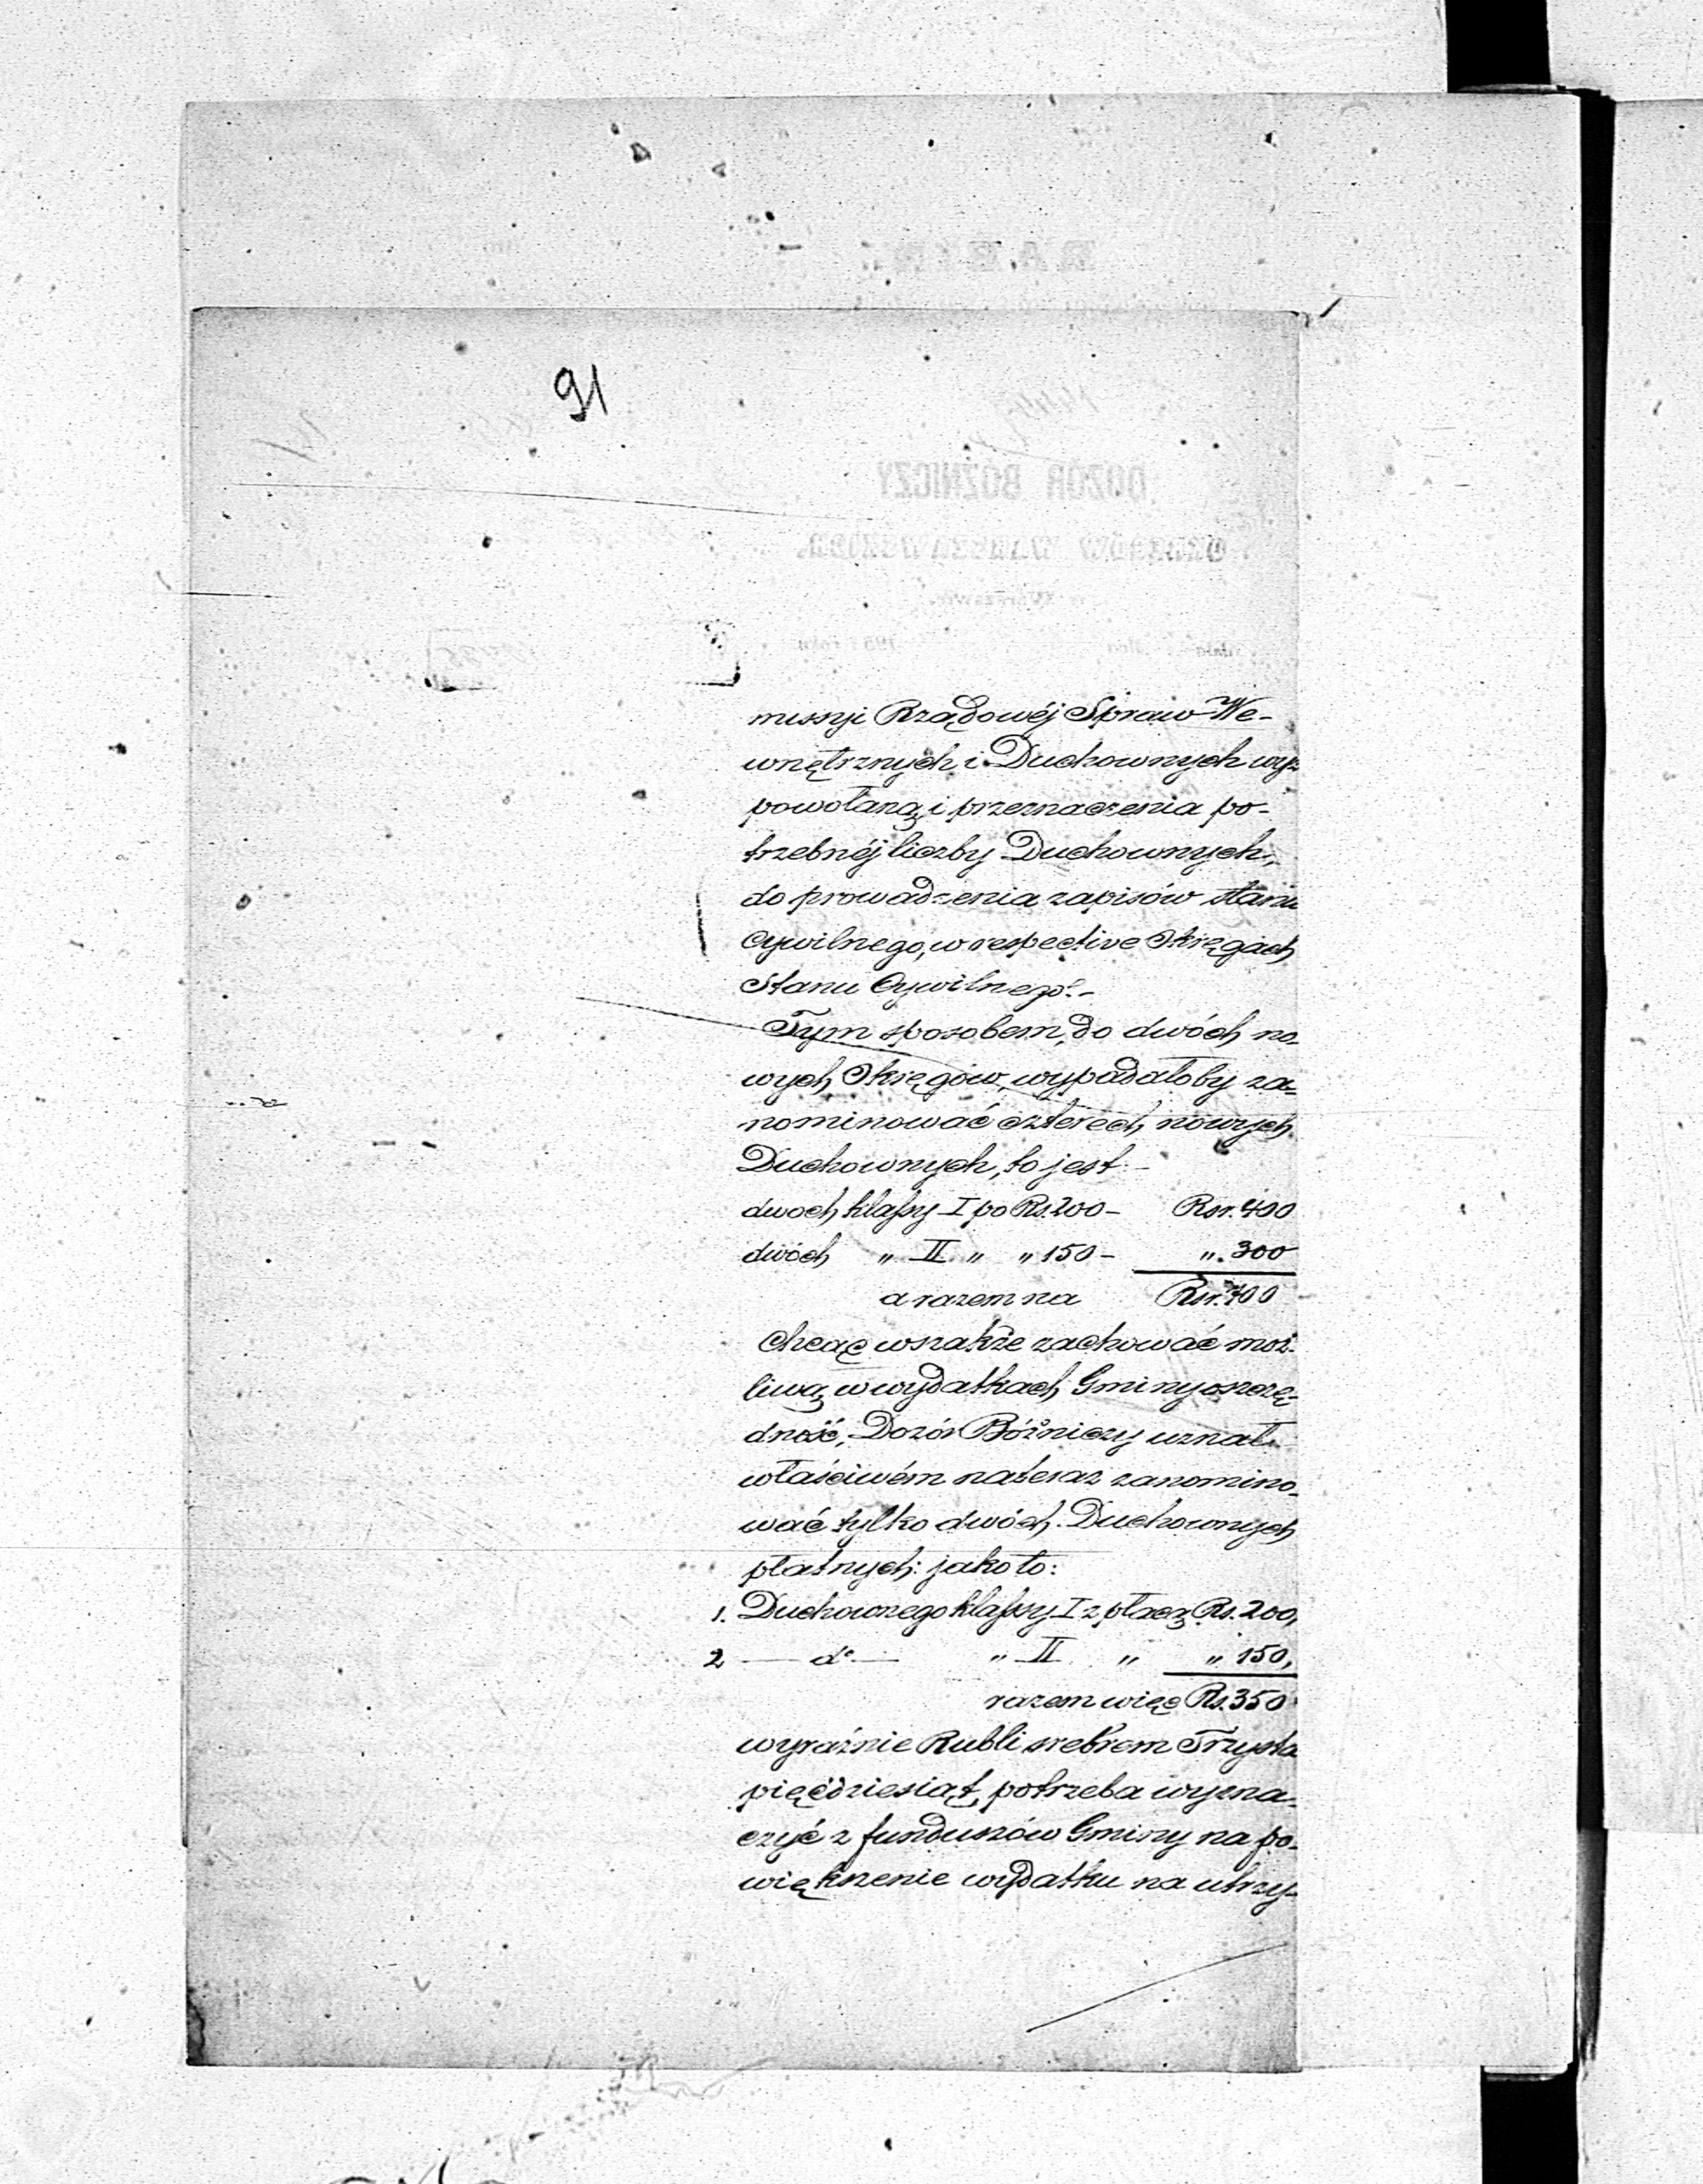 91
missyi Rządowéj Spraw We-
wnętrznych i Duchownych wyż
powołaną i przeznaczenia po-
trzebnéj liczby Duchownych,
do prowadzenia zapisów stanu
cywilnego, w respective Okręgach
Stanu Cywilnego.-
Tym sposobem, do dwóch no-
wych Okręgów, wypadałoby za-
nominować czterech nowych
Duchownych, to jest:-
dwoch klassy I po Rs. 200- Rsr. 400
dwóch " II " " 150- " 300
a razem na Rsr. 700
Chcąc wszakże zachować moż-
liwą w wydatkach Gminy oszczę-
dność, Dozór Bóżniczy uznał
właściwém nateraz zanomino-
wać tylko dwóch Duchownych
płatnych: jako to:
1. Duchownego klassy I z płacą Rs. 200,
2 — do — " II " " 150,
razem więc Rs. 350
wyraźnie Rubli srebrem Trzysta
pięćdziesiąt, potrzeba wyzna-
czyć z funduszów Gminy na po-
większenie wydatku na utrzy-
DOZÓR BÓŻNICZY
OKRĘGÓW WARSZAWSKICH
w Warszawie